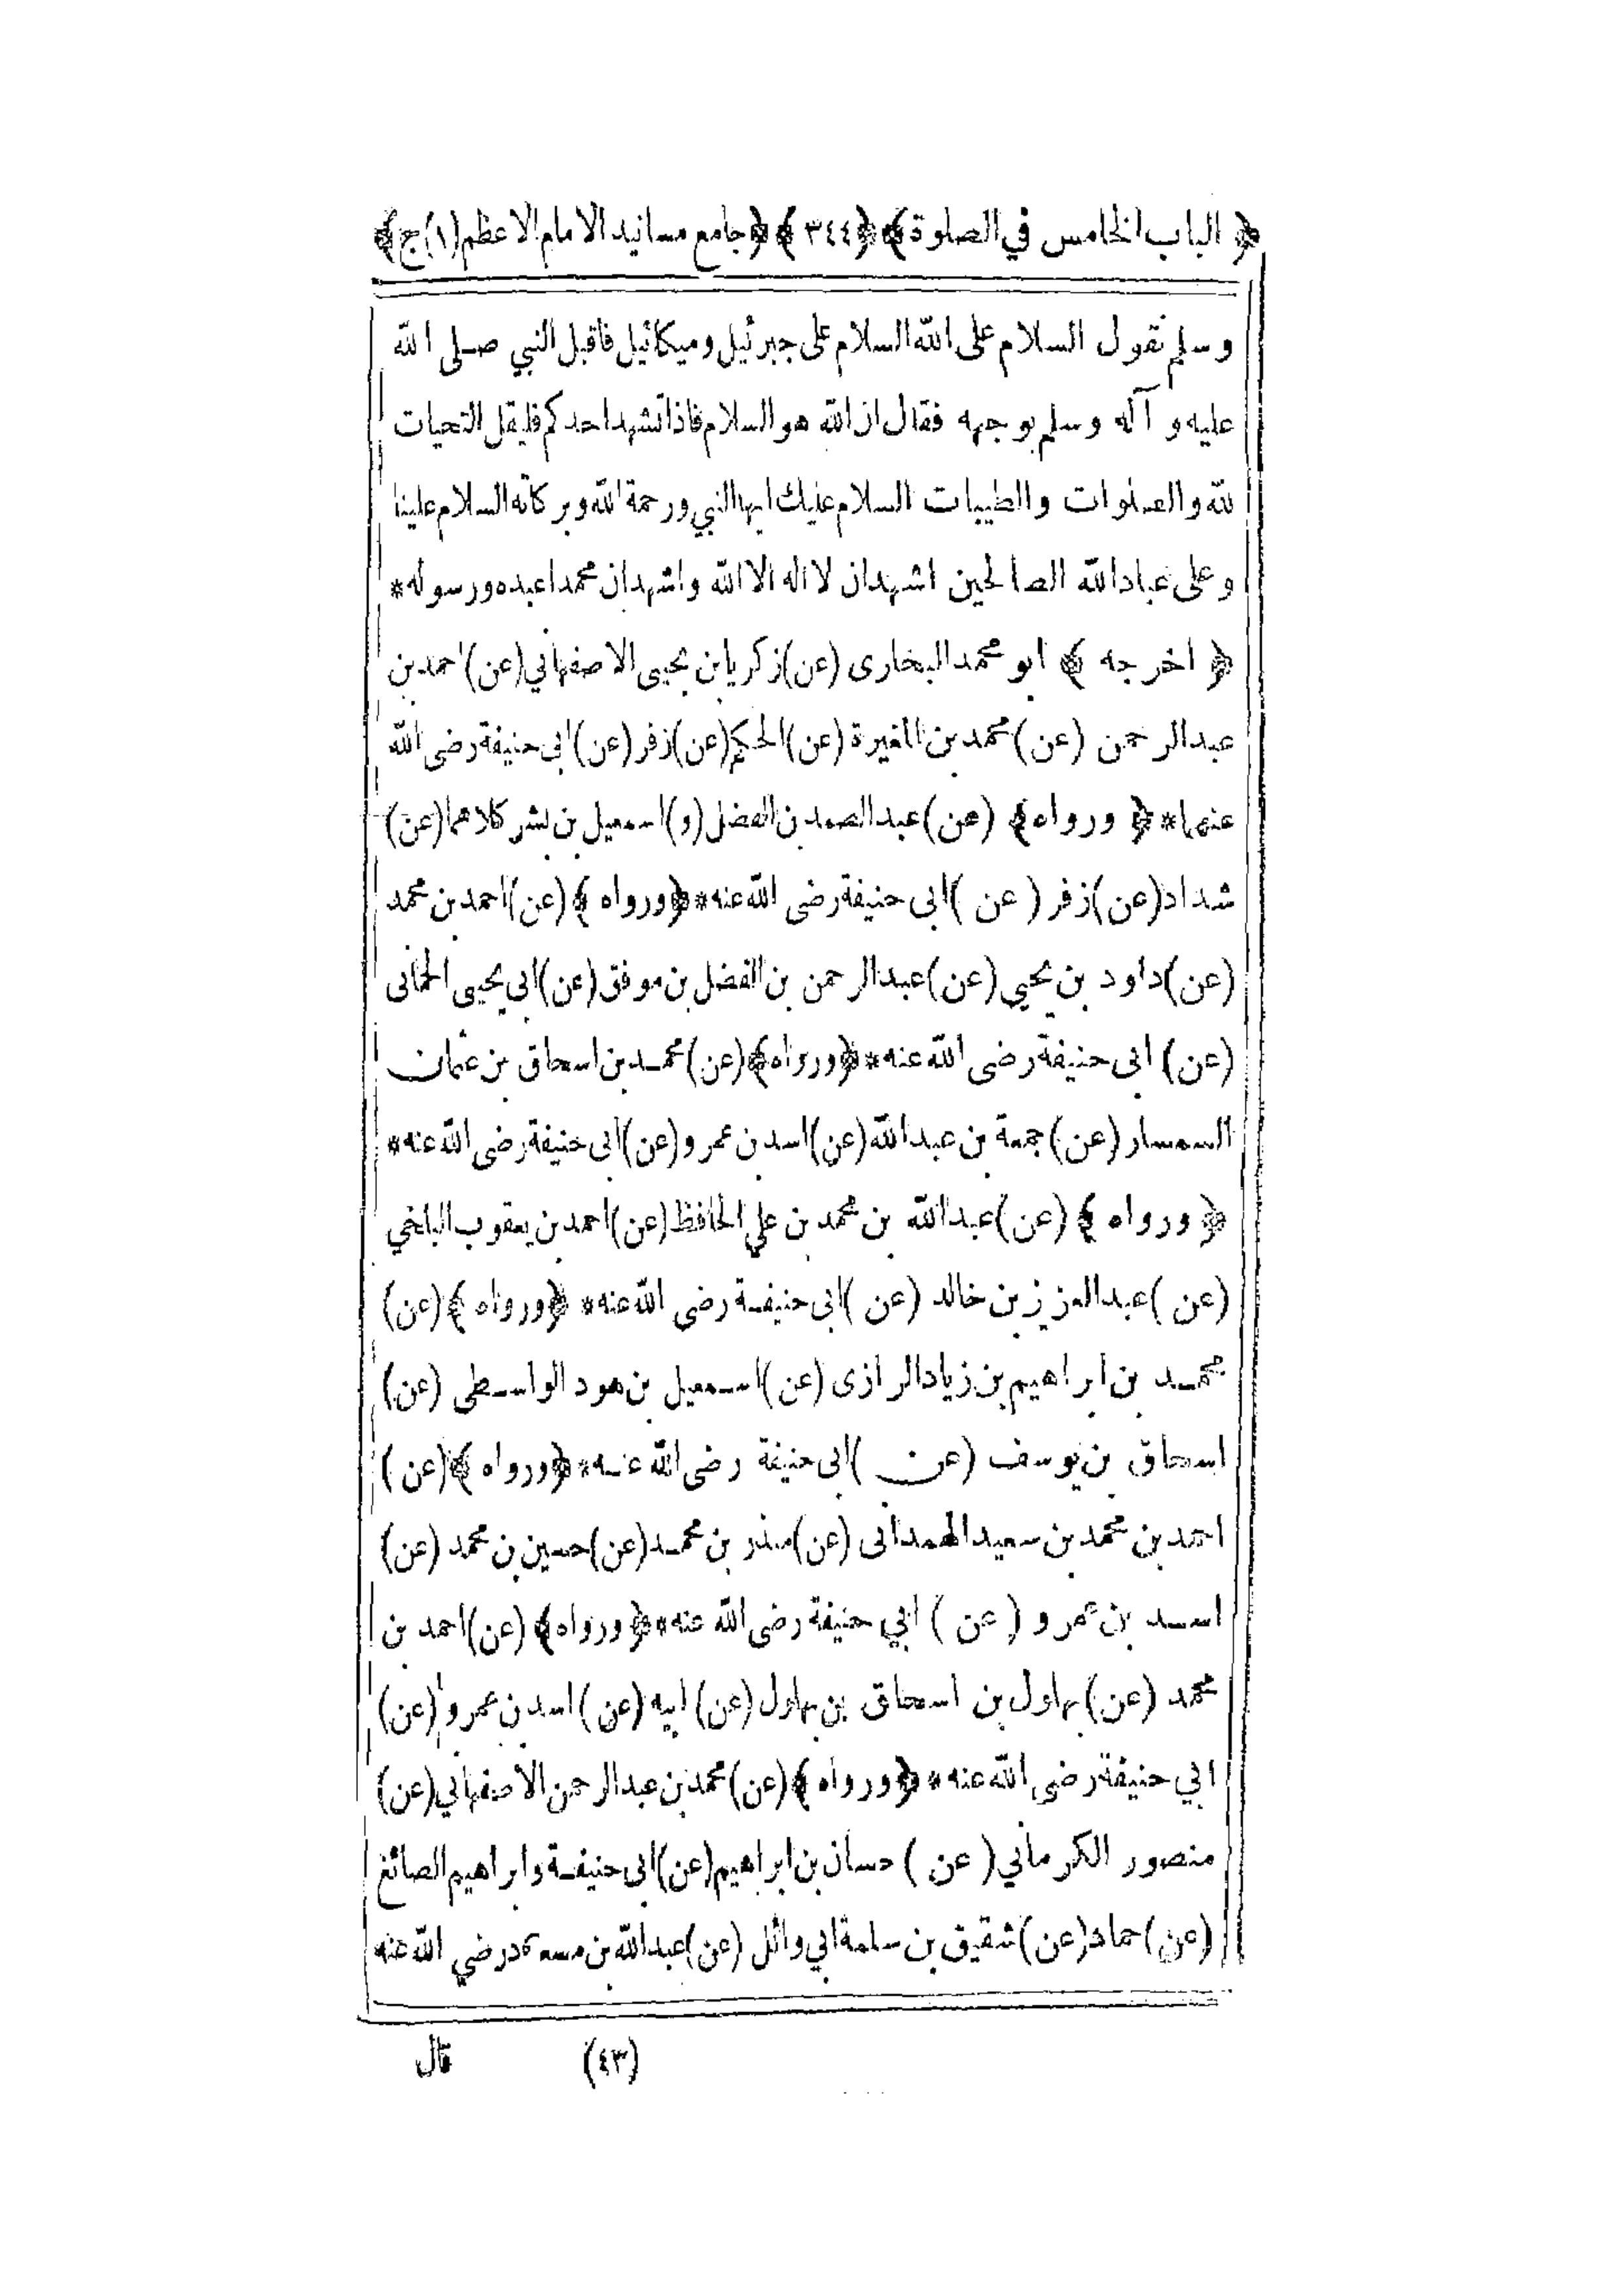 ﴿ الباب الخامس في الصلوة ﴾ ﴿ ٣٤٤ ﴾ ﴿ جامع مسانيد الامام الاعظم (١) ج ﴾
وسلم نقول السلام على الله السلام على جبرئيل وميكائيل فاقبل النبي صلى الله
عليه وآله وسلم بوجهه فقال ان الله هو السلام فاذا تشهد احدكم فليقل التحيات
لله والصلوات والطيبات السلام عليك ايها النبي ورحمة الله وبركاته السلام علينا
وعلى عباد الله الصالحين اشهد ان لا اله الا الله واشهد ان محمدا عبده ورسوله *
﴿ اخرجه ﴾ ابو محمد البخارى (عن) زكريا بن يحيى الاصفهاني (عن) احمد بن
عبد الرحمن (عن) محمد بن المغيرة (عن) الحكم (عن) زفر (عن) ابى حنيفة رضى الله
عنهما * ﴿ ورواه ﴾ (عن) عبد الصمد بن الفضل (و) اسمعيل بن بشر كلاهما (عن)
شداد (عن) زفر (عن) ابى حنيفة رضى الله عنه * ﴿ ورواه ﴾ (عن) احمد بن محمد
(عن) داود بن يحيى (عن) عبد الرحمن بن الفضل بن موفق (عن) ابى يحيى الحمانى
(عن) ابى حنيفة رضى الله عنه * ﴿ ورواه ﴾ (عن) محمد بن اسحاق بن عثمان
السمسار (عن) جمعة بن عبد الله (عن) اسد بن عمرو (عن) ابى حنيفة رضى الله عنه *
﴿ ورواه ﴾ (عن) عبد الله بن محمد بن علي الحافظ (عن) احمد بن يعقوب البلخي
(عن) عبد العزيز بن خالد (عن) ابى حنيفة رضى الله عنه * ﴿ ورواه ﴾ (عن)
محمد بن ابراهيم بن زياد الرازى (عن) اسمعيل بن هود الواسطى (عن)
اسحاق بن يوسف (عن) ابى حنيفة رضى الله عنه * ﴿ ورواه ﴾ (عن)
احمد بن محمد بن سعيد الهمدانى (عن) منذر بن محمد (عن) حسين بن محمد (عن)
اسد بن عمرو (عن) ابي حنيفة رضى الله عنه * ﴿ ورواه ﴾ (عن) احمد بن
محمد (عن) بهلول بن اسحاق بن بهلول (عن) ابيه (عن) اسد بن عمرو (عن)
ابي حنيفة رضى الله عنه * ﴿ ورواه ﴾ (عن) محمد بن عبد الرحمن الاصفهاني (عن)
منصور الكرماني (عن) حسان بن ابراهيم (عن) ابى حنيفة وابراهيم الصائغ
(عن) حماد (عن) شقيق بن سلمة ابي وائل (عن) عبد الله بن مسعود رضي الله عنه
(٤٣) قال